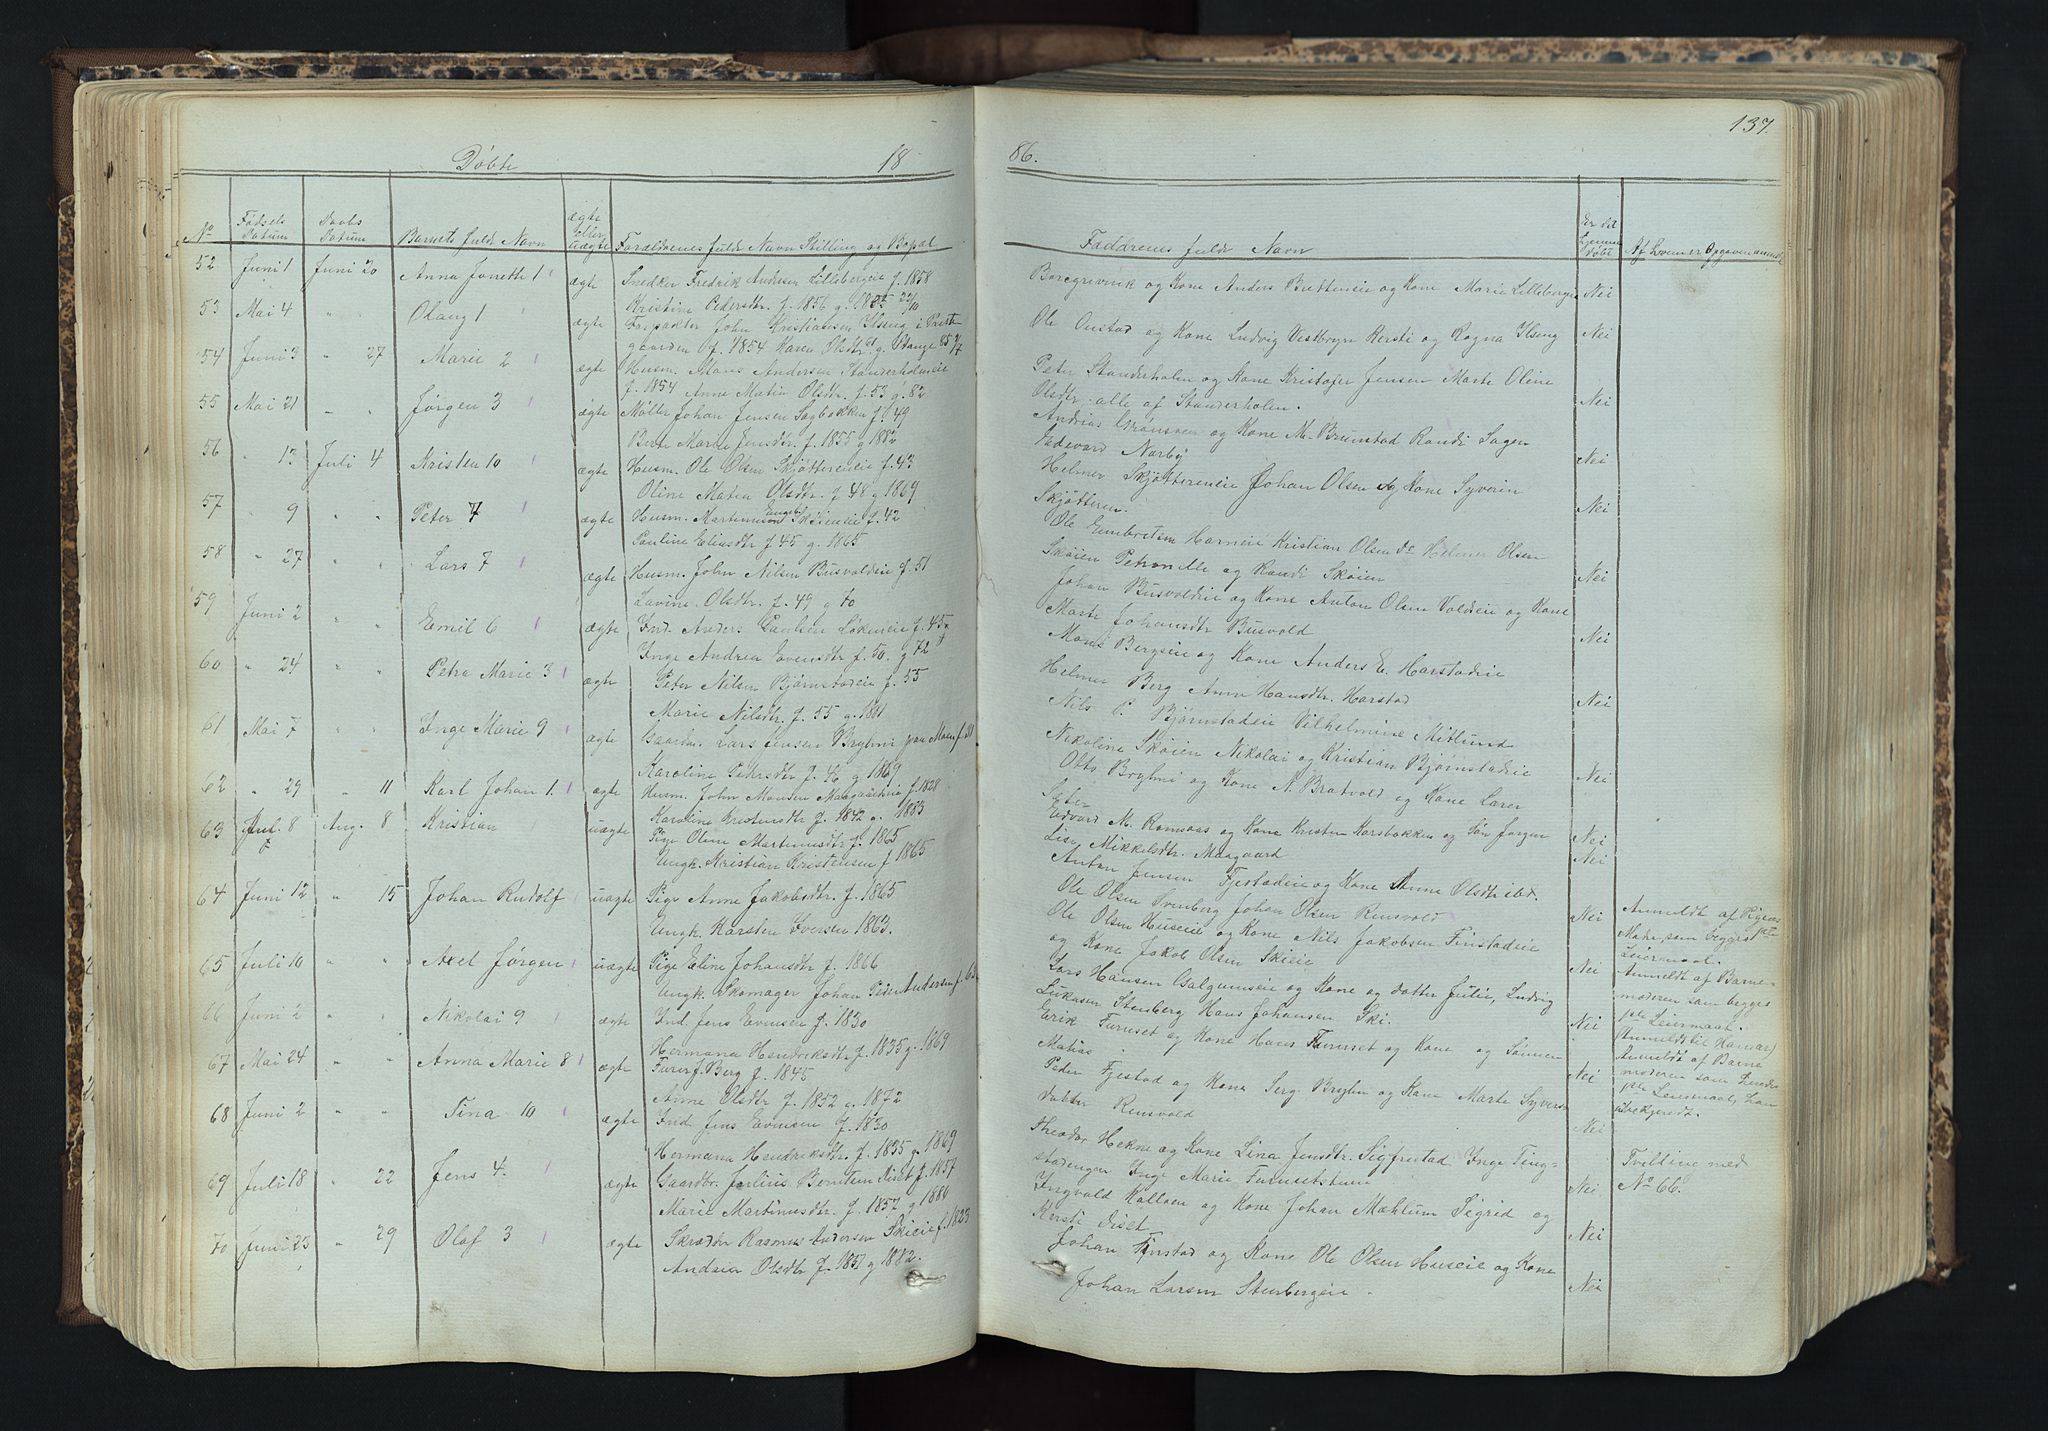 137.
Døbte 18
86.
No Fødsels Datum Daabs Datum Barnets fulde Navn ægte eller uægte Forældrenes fulde Navn Stilling og Bopæl
Faddrenes fulde Navn Er det hjemmedøbt Af hvem er Opgaven anmeldt
52 Juni 1 Juni 20 Anna Jonette 1 ægte Snedker Fredrik Andersen Lillebergeie f. 1858
Kristine Pedersdtr. f. 1856 g. 1885 22/10
og Kone Anders og Kone Marie Nei
53 Mai 4 " " Olaug 1 ægte Forpakter John Kristiansen Ilseng i Preste
gaarden f. 1854 Karen Olsdtr. g. Stange 85
Ole Onstad og Kone Ludvig Kersti og Ragna Ilseng Nei
54 Juni 3 " 27 Marie 2 ægte Husm. Mons Andersen Standerholeneie
f. 1854 Anne Matia Olsdtr. f. 53 g. 82
Peter Standerholen og Kone Kristofer Jensen Marte Oline
Olsdtr. alle af Standerholen. Nei
55 Mai 21 " " Jørgen 3 ægte Møller Johan Jensen Sagbakken f. 49
Berte Marie Jensdtr. f. 1855 g 1882
Andrias og Kone M. Brunstad Randi Sagen
Edevard Narby Nei
56 " 13 Juli 4 Kristen 10 ægte Husm. Ole Olsen Skjøttereneie f. 43
Oline Matea Olsdtr. f. 48 g 1869
Helmer Skjøttereneie Johan Olsen og Kone Syverin
Skjøtteren. Nei
57 " 9 " " Peter 7 ægte Husm. Martinus Skøieneie f. 42
Pauline Eliasdtr f 45 g. 1865
Ole Embretsen Horneie Kristian Olsen Helmer Olsen
Skøien Petronelle og Randi Skøien Nei
58 " 27 " " Lars 7 ægte Husm. John Nilsen Busvoldeie f. 51
Lavine Olsdtr. f. 49 g 70
Johan Busvoldeie og Kone Anton Olsen Voldeie og Kone
Marte Johansdtr Busvold Nei
59 Juni 2 " " Emil 6 ægte Ind. Anders Paulsen Løkeneie f. 45
Inge Andrea Evensdtr f. 50. g 72
Mons Bergseie og Kone Anders E. Harstadeie
Helmer Berg Anne Hansdtr. Harstad Nei
60 " 24 " " Petra Marie 3 ægte Peter Nilsen Bjørnstadeie f. 55
Marie Nilsdtr. f. 55 g. 1881
Nils P. Bjørnstadeie Vilhelmine Mitlund
Nikoline Skøien Nikolai og Kristian Bjørnstadeie Nei
61 Mai 7 " " Inge Marie 9 ægte Gaardbr. Lars Jensen Bryhni paa Moen f. 41
Karoline Petersdtr f. 46 g 1869
Otto Bryhni og Kone N. Bratvold og Kone Laren
Sæter
62 " 29 " 11 Karl Johan 1. ægte Husm. John Monsen Maagaardeie f. 1828
Karoline Kristensdtr f. 1842 g. 1883
Edvard M. Romsaas og Kone Kristen Karsbakken og Søn Jørgen Nei
Lise Mikkelsdtr. Maagaard Nei
63 Jul. 8 Aug. 8 Kristian uægte Pige Oline Martinusdtr f. 1865
Ungk. Kristian Kristensen f 1865
Anton Jensen Fjestadeie og Kone Anne Olsdtr ibd.
Ole Olsen Svenberg Johan Olsen Rensvold Nei
Anmeldt af Pigens
Moder, som begges 1ste
Leiermaal.
64 Juni 12 " 15 Johan Rudolf uægte Pige Anne Jakobsdtr. f. 1865
Ungk. Karsten Iversen 1863.
Ole Olsen Huseie og Kone Nils Jakobsen Finstadeie
og Kone Jakob Olsen Skieie Nei
Anmeldt af Barne-
moderen som begges
1ste Leiermaal.
(Anmeldt til Hamar)
65 Juli 10 " " Axel Jørgen uægte Pige Eline Johansdtr f. 1866
Ungk. Skomager Johan Peder Andersen f. 62
Lars Hansen Galgumseie og Kone og datter Julie, Ludvig
Lukasen Stenberg Hans Johansen Ski. Nei
Anmeldt af Barne
moderen som
1ste Leiermaal, han
ubekjendt.
66 Juni 2 " " Nikolai 9 ægte Ind. Jens Evensen f. 1830
Hermana Hendriksdtr f 1835 g. 1869
Erik Furuset og Kone Hans Furuset og Kone og Sønnen
Matias Nei
67 Mai 24 " " Anna Marie 8 ægte Furer J. Berg f. 1845
Anne Olsdtr f. 1852 g. 1872
Peder Fjestad og Kone Serg. Bryhn og Kone Marte Syvers
datter Rensvold Nei
68 Juni 2 " " Tina 10 ægte Ind. Jens Evensen f. 1830
Hermana Hendriksdtr. f. 1835 g 1869
Theodor Hekne og Kone Lina Jensdtr. Sigfrustad Inge Ting-
stadengen Inge Marie Furusetstuen Nei
Tvilling med
No 66.
69 Juli 18 " 22 Jens 4. ægte Gaardbr. Julius Berntsen Diset f. 1857
Marie Martinusdtr f. 1857 g 1880
Ingvald Kolloen og Kone Johan Mæhlum Sigrid og
Kersti Diset Nei
70 Juni 23 " 29 Olaf 3 ægte Skræder Rasmus Andersen Skieie f. 1823
Andrea Olsdtr f. 1857 g 1882.
Johan Finstad og Kone Ole Olsen Huseie og Kone
Johan Larsen Stenbergeie. Nei